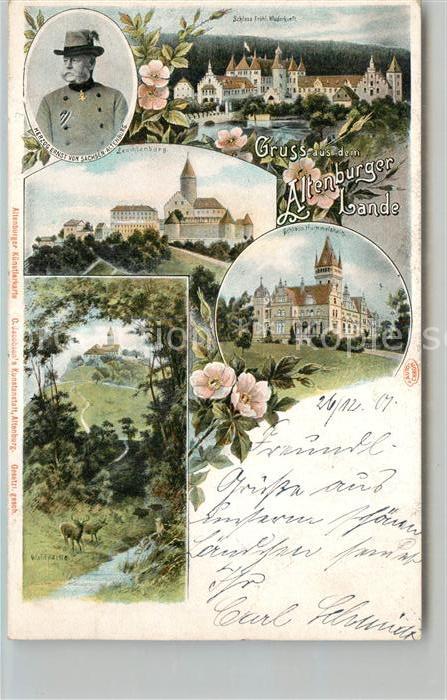 Schloss Fröhl. Wiederkunft.
HERZOG ERNST VON SACHSEN-ALTENBURG
Gruss aus dem
Altenburger
Lande
Leuchtenburg.
Schloss Hummelshain.
Altenburger Künstlerkarte O. Jacobson's Kunstanstalt, Altenburg. Gesetzl. gesch.
26/12.01.
Freundl.
Grüße aus
unserm schönen
Ländchen sendet
Ihr
Carl Schmidt